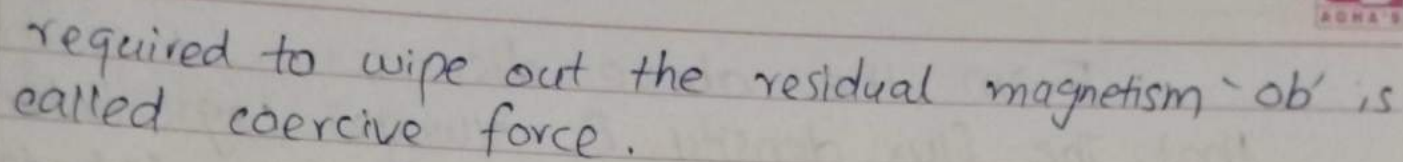 AGHA'S
required to wipe out the residual magnetism 'ob' is
called coercive force.